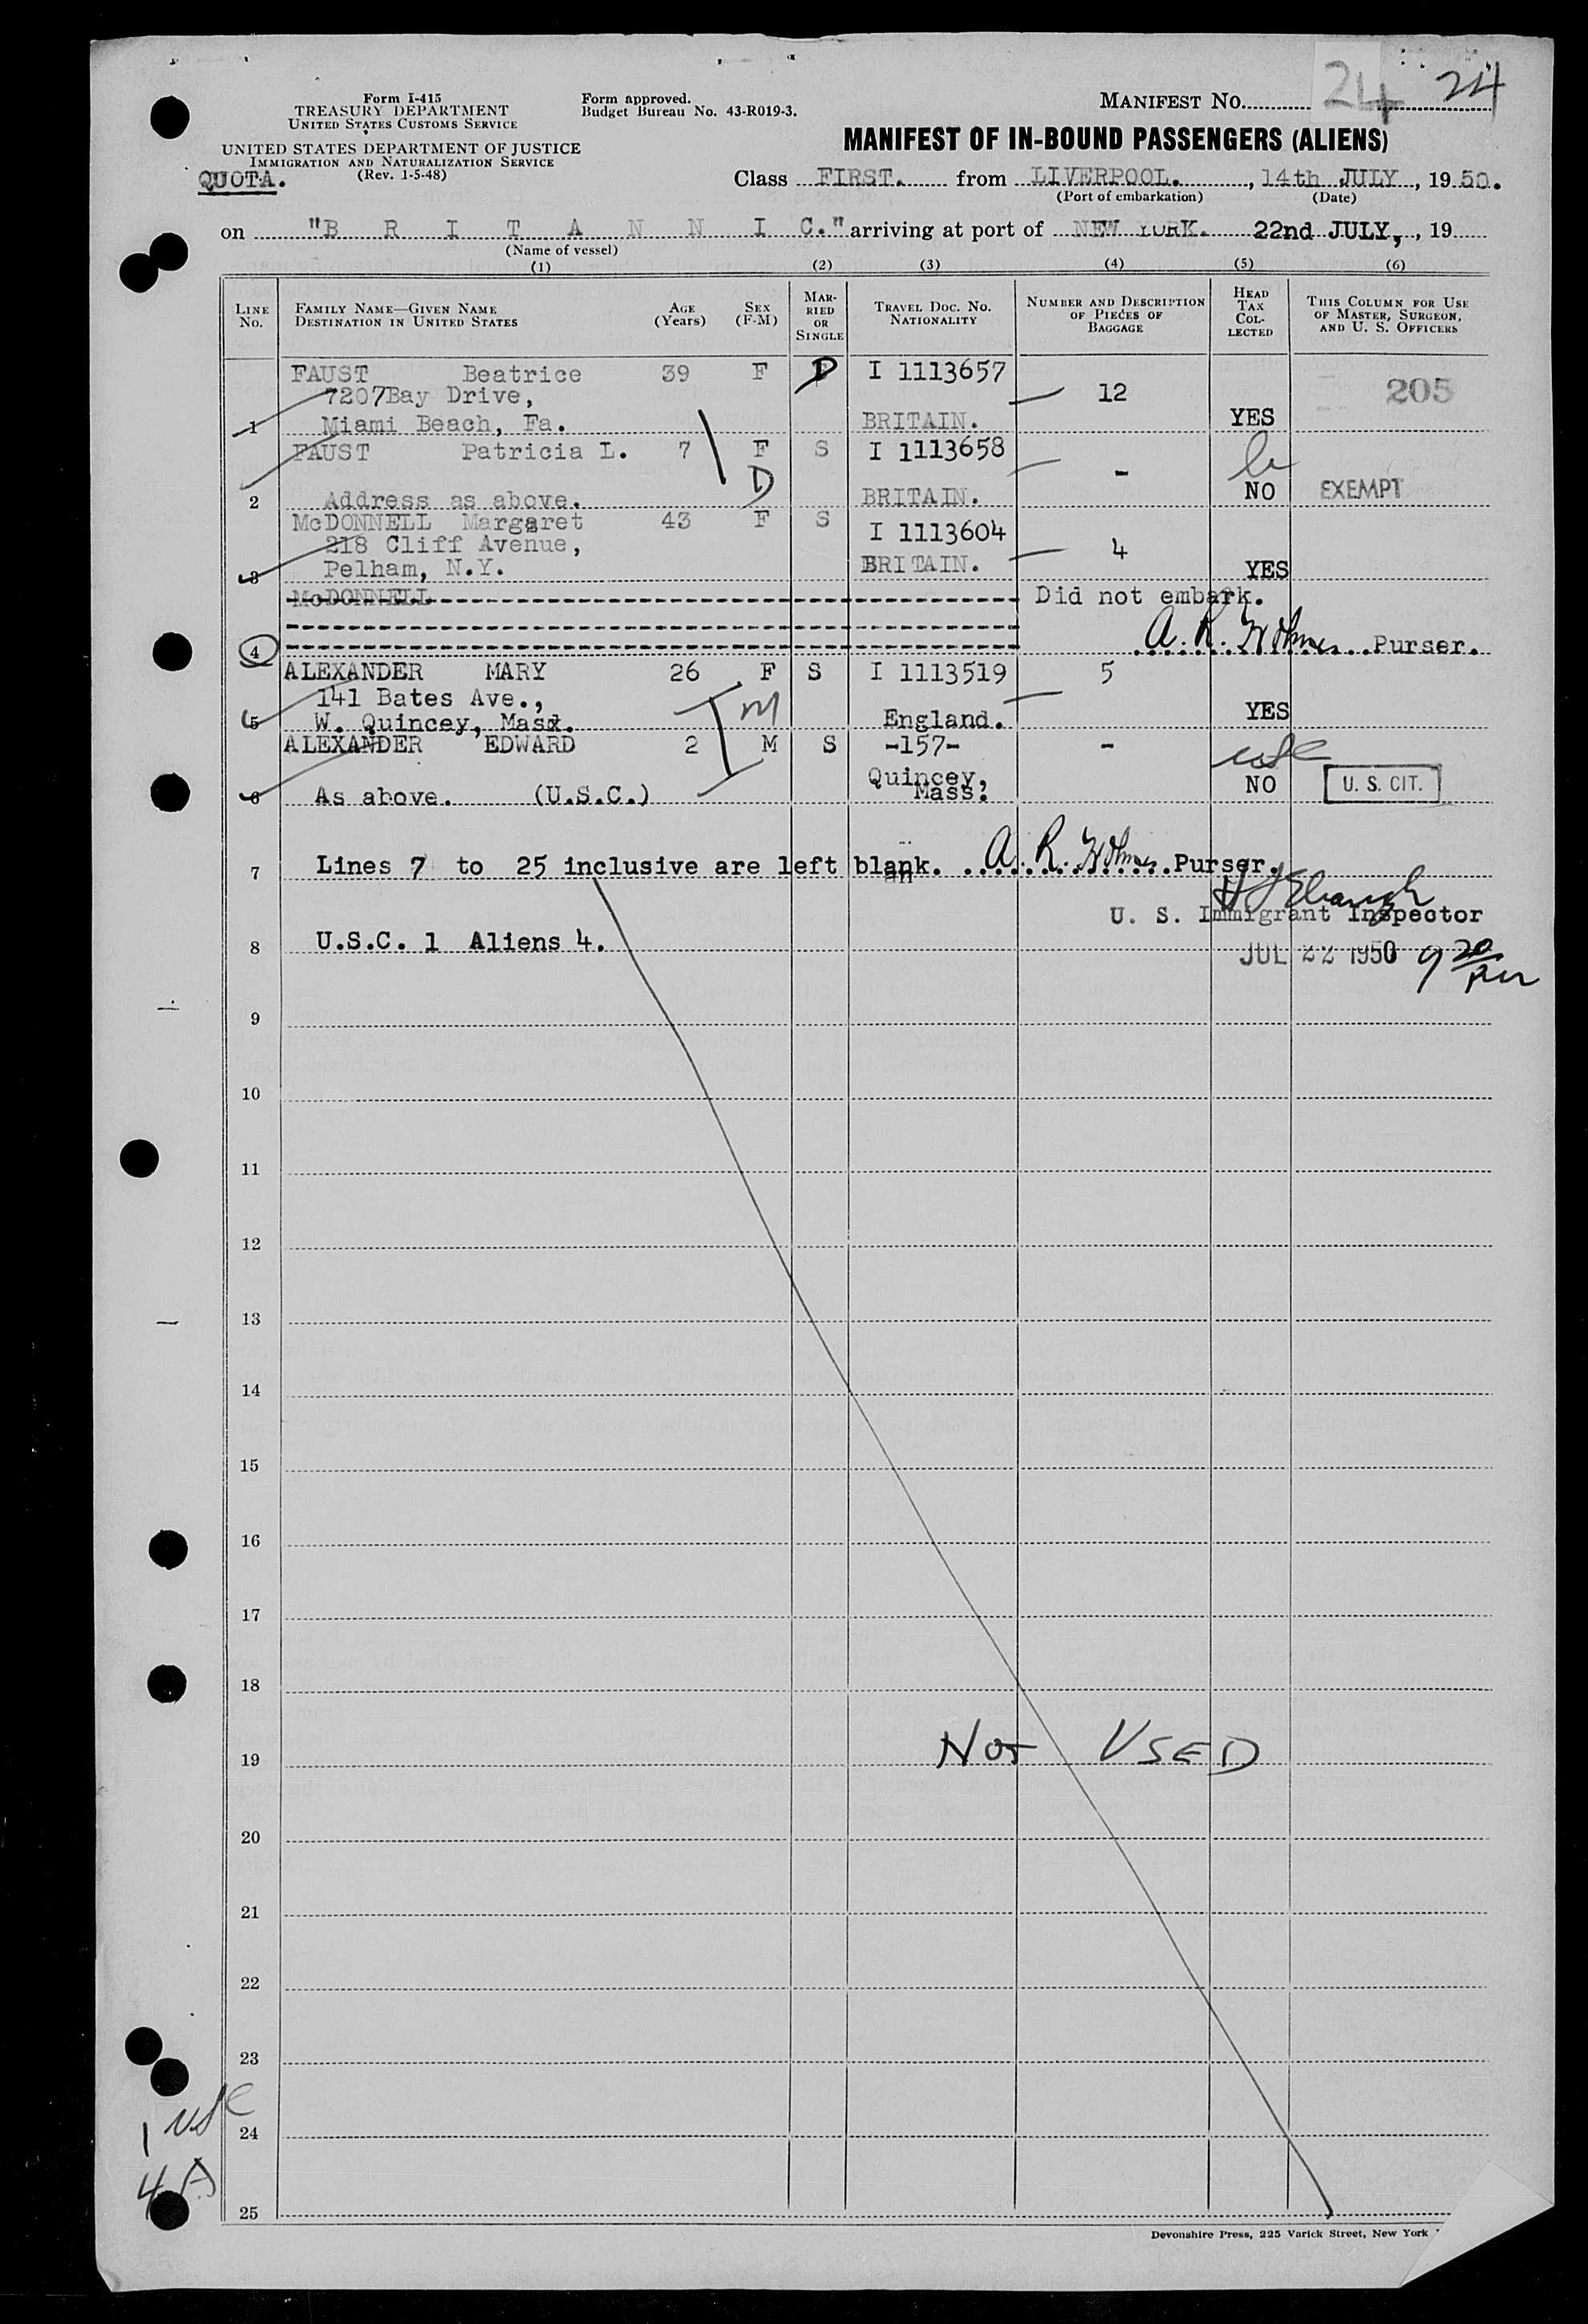 Form I-415
TREASURY DEPARTMENT
UNITED STATES CUSTOMS SERVICE
UNITED STATES DEPARTMENT OF JUSTICE
IMMIGRATION AND NATURALIZATION SERVICE
(Rev. 1-5-48)
QUOTA.
Form approved.
Budget Bureau No. 43-R019-3.
MANIFEST NO. 24 24
MANIFEST OF IN-BOUND PASSENGERS (ALIENS)
Class FIRST. from LIVERPOOL. , 14th JULY , 19 50.
(Port of embarkation) (Date)
on "B R I T A N N I C." arriving at port of NEW YORK. 22nd JULY, , 19
(Name of vessel)
(1) (2) (3) (4) (5) (6)
LINE No.
FAMILY NAME—GIVEN NAME
DESTINATION IN UNITED STATES
AGE (Years)
SEX (F-M)
MARRIED OR SINGLE
TRAVEL DOC. NO.
NATIONALITY
NUMBER AND DESCRIPTION OF PIECES OF BAGGAGE
HEAD TAX COLLECTED
THIS COLUMN FOR USE OF MASTER, SURGEON, AND U. S. OFFICERS
FAUST Beatrice 39 F D I 1113657
7207Bay Drive, 12 205
1 Miami Beach, Fa. BRITAIN. YES
FAUST Patricia L. 7 F S I 1113658 -
D
2 Address as above. BRITAIN. NO EXEMPT
McDONNELL Margaret 43 F S I 1113604
218 Cliff Avenue, 4
3 Pelham, N.Y. BRITAIN. YES
McDONNELL Did not embark.
4 Purser.
ALEXANDER MARY 26 F S I 1113519 5
141 Bates Ave., M
5 W. Quincey, Mass. England. YES
ALEXANDER EDWARD 2 M S -157- -
usc
6 As above. (U.S.C.) Quincey, Mass. NO U. S. CIT.
7 Lines 7 to 25 inclusive are left blank. Purser.
U. S. Immigrant Inspector
8 U.S.C. 1 Aliens 4. JUL 22 1950 9 20
9
10
11
12
13
14
15
16
17
18
19 NOT USED
20
21
22
23
1 usc
24
4 A
25
Devonshire Press, 225 Varick Street, New York